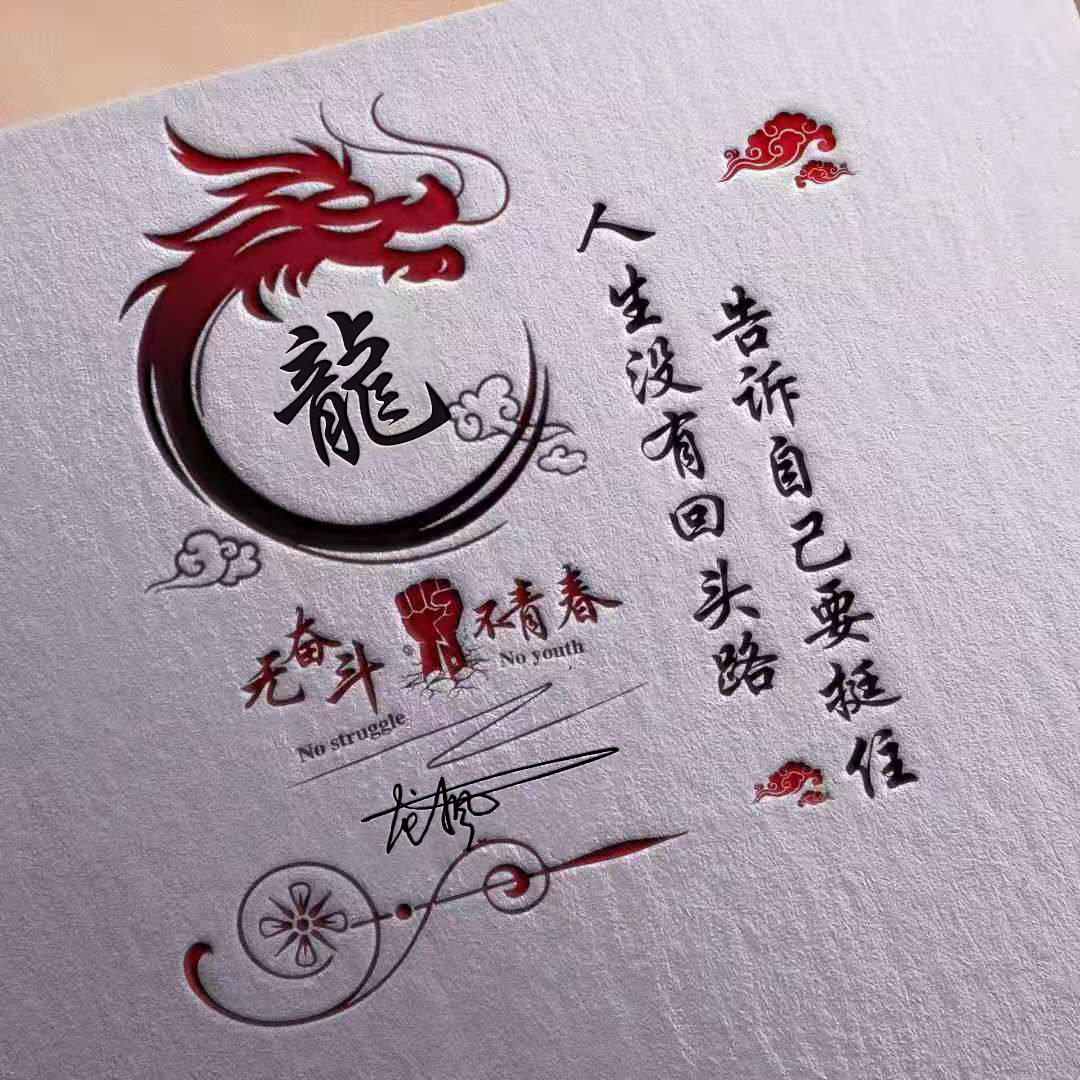 龍
无奋斗
不青春
No struggle
No youth
龙枫
人生没有回头路
告诉自己要挺住